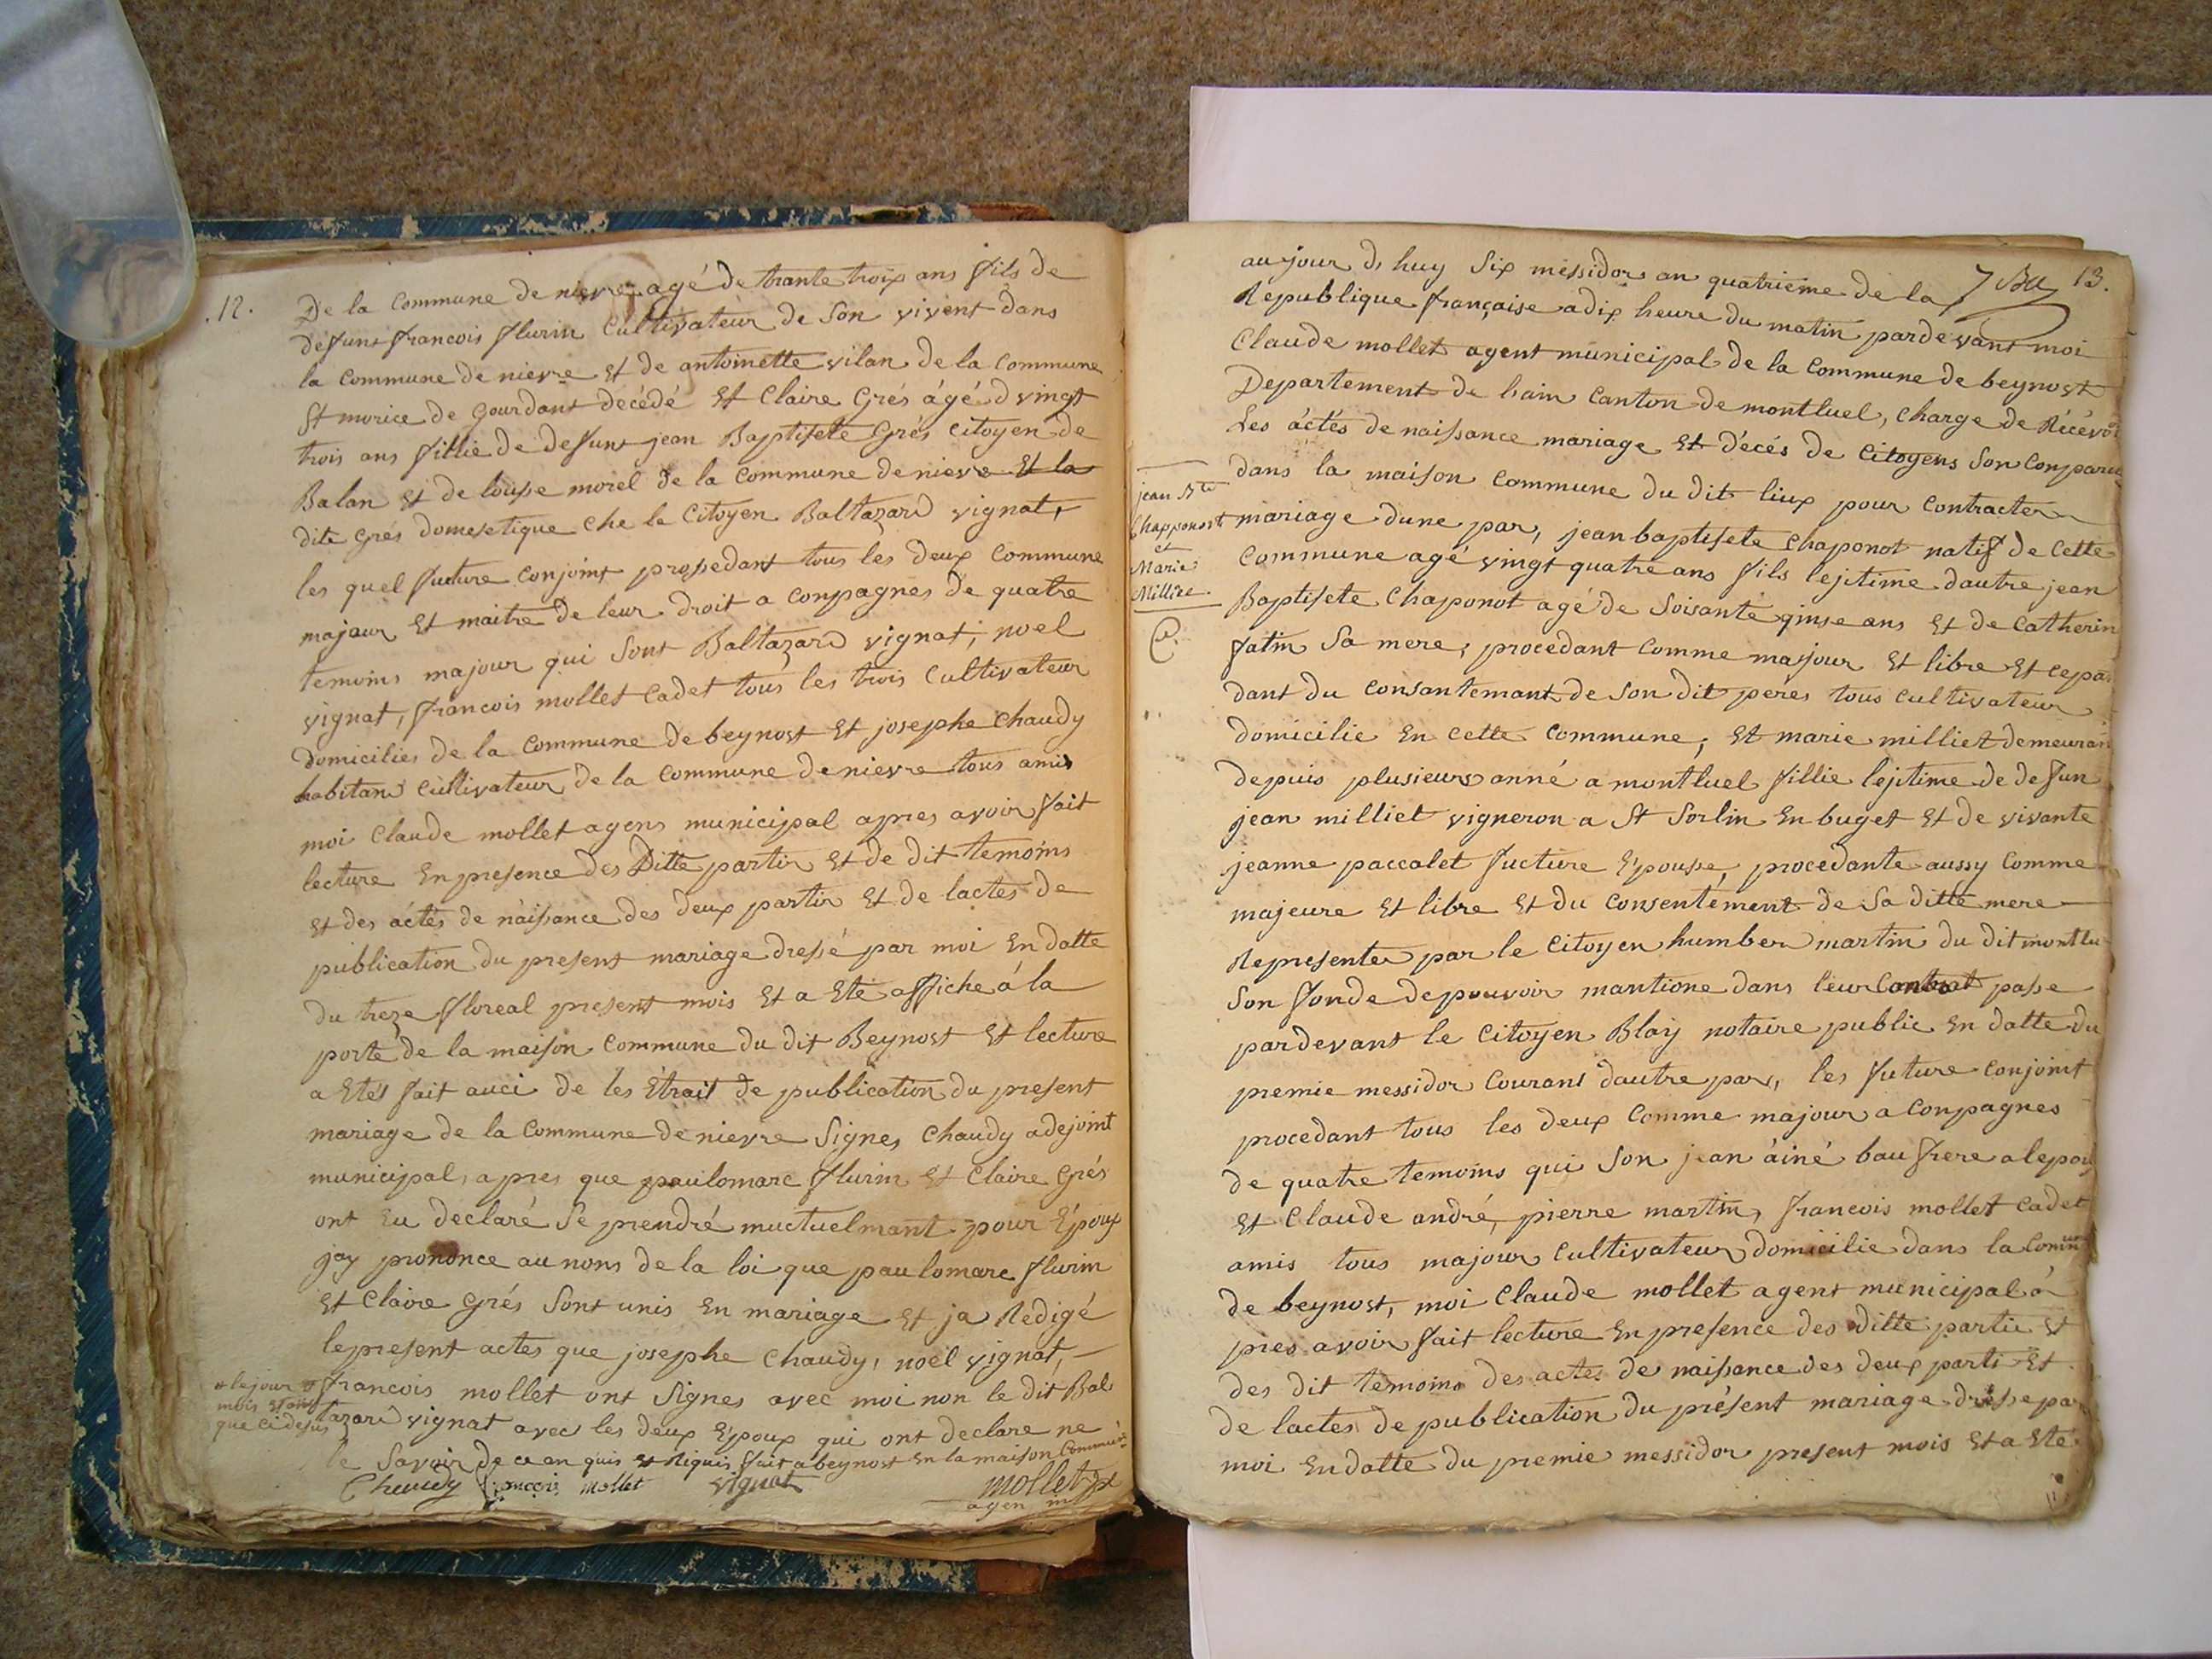 .12.
De la commune de nievre agé de trante troix ans fils de
defunt francois flurin Cultivateur de Son vivent dans
la commune de nievre et de antoinette vilan de la commune
St morice de gourdant décédé et Claire Grés àgé d vingt
trois ans fillie de defunt jean Baptisete Grés citoyen de
Balan et de louise morel de la commune de nievre et la
dite grés domesetique che le Citoyen Baltazard vignat,
les quel future conjoint prossedant tous les deux commune
majour et maitre de leur droit a conpagnes de quatre
temoins majour qui Sont Baltazard vignat, noel
vignat, francois mollet cadet tous les trois Cultivateur
Domicilies de la commune de beynost et josephe chaudy
habitant cultivateur de la commune de nievre tous amis
moi Claude mollet agens municipal apres avoir fait
lecture En presence des Ditte partir et de dit temoins
et des áctés de naissance des deux partir et de lactes de
publication du present mariage dressé par moi en datte
du treze floreal present mois et a eté affiche á la
porte de la maison commune du dit Beynost et lecture
a etes fait auci de les Étrait de publication du present
mariage de la commune de nievre Signes Chaudy adejoint
municipal, apres que paulomare flurin et Claire Grés
ont Eu declaré Se prendré muctuelmant pour Époux
jay prononce au nons de la loi que paulomare flurin
et Claire grés Sont unis en mariage et ja Redigé
le present actes que josephe Chaudy, noel vignat,
francois mollet ont Signes avec moi non le dit Bal
tazard vignat avec les deux Époux qui ont declare ne
le Savoir de ce en quis et Riquis fait a beynost en la maison commune
le jour
mois et an
que ci desus
Chaudy francois mollet vignat mollet
agen m
7 13.
aujour d, huy Six messidor an quatrieme de la
Republique française a dix heure du matin pardevant moi
Claude mollet agent municipal de la commune de beynost
Departement de l'ain Canton de montluel, charge de Récévoi
Les áctés de naissance mariage et décés de citoyens Son Conparu
dans la maison commune du dit liux pour contracter
mariage dune par, jean baptisete chaponot natif de Cette
commune agé vingt quatre ans fils lejitime dautre jean
Baptisete Chaponot agé de Soisante qinse ans et de Catherin
fatin Sa mere, procedant comme majour et libre et cepa
dant du consantemant de Son dit peres tous cultivateur
domicilie En cette commune, et marie milliet demeuran
depuis plusieurs anné a montluel fillie lejitime de defun
jean milliet vigneron a St Sorlin En buget et de vivante
jeanne paccalet fucture Épousse, procedante aussy comme
majeure et libre et du consentement de Sa ditte mere
Representer par le citoyen humber martin du dit montlu
Son fonde de pouvoir mantione dans leur Contrat passe
pardevant le Citoyen Blay notaire public en datte du
premie messidor Courant dautre par, les future conjoint
procedant tous les deux Comme majour a Conpagnes
de quatre temoins qui Son jean áiné bau frere a lepou
et Claude andré, pierre martin, francois mollet cadet
amis tous majour Cultivateur domicilie dans la Commun
de beynost, moi Claude mollet agent municipal á
pres avoir fait lecture En presence des ditte partie et
des dit temoins des actes de naissance des deux parti et
de lactes de publication du présent mariage dresse par
moi en datte du premie messidor present mois et a eté
jean Bte
Chapponost
et
Marie
Milliet.